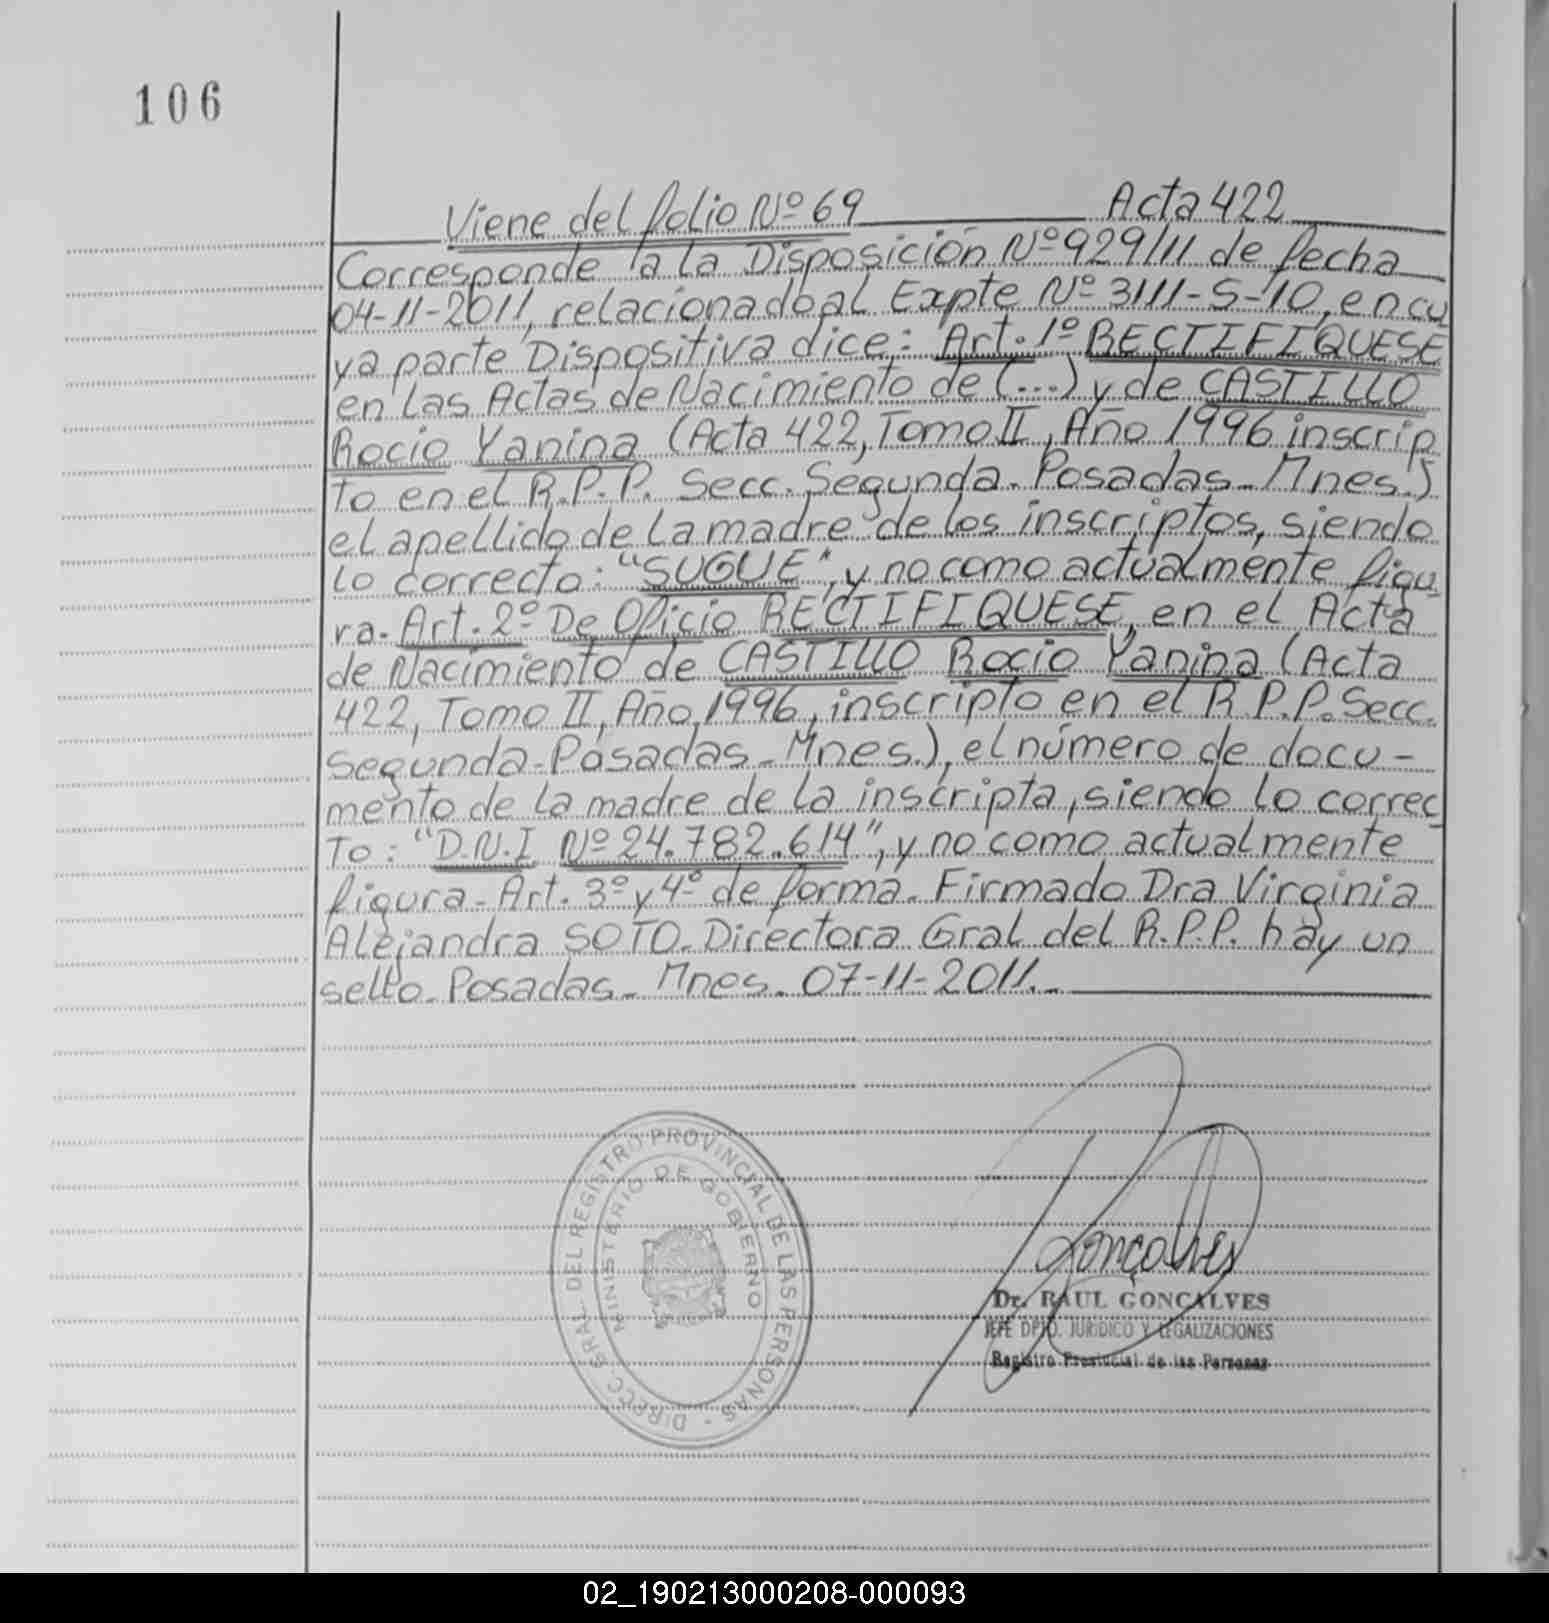 106
Viene del folio Nº 69 Acta 422
Corresponde a la Disposición Nº 929/11 de fecha
04-11-2011, relacionado al Expte Nº 3111-S-10, en cu
ya parte Dispositiva dice: Art. 1º RECTIFIQUESE
en las Actas de Nacimiento de (...) y de CASTILLO
Rocio Yanina (Acta 422, Tomo II, Año 1996 inscrip
to en el R.P.P. Secc. Segunda. Posadas - Mnes.)
el apellido de la madre de los inscriptos, siendo
lo correcto: "SUGUE", y no como actualmente figu
ra. Art. 2º De Oficio RECTIFIQUESE, en el Acta
de Nacimiento de CASTILLO Rocio Yanina (Acta
422, Tomo II, Año 1996, inscripto en el R.P.P. Secc.
Segunda - Posadas - Mnes.), el número de docu-
mento de la madre de la inscripta, siendo lo correc
to: "D.N.I Nº 24.782.614", y no como actualmente
figura - Art. 3º y 4º de forma. Firmado Dra Virginia
Alejandra SOTO. Directora Gral del R.P.P. hay un
sello. Posadas - Mnes. 07-11-2011.-
DIRECC. GRAL. DEL REGISTRO PROVINCIAL DE LAS PERSONAS -
MINISTERIO DE GOBIERNO
Gonçalves
Dr. RAUL GONÇALVES
JEFE DPTO. JURIDICO Y LEGALIZACIONES
Registro Provincial de las Personas
02_190213000208-000093